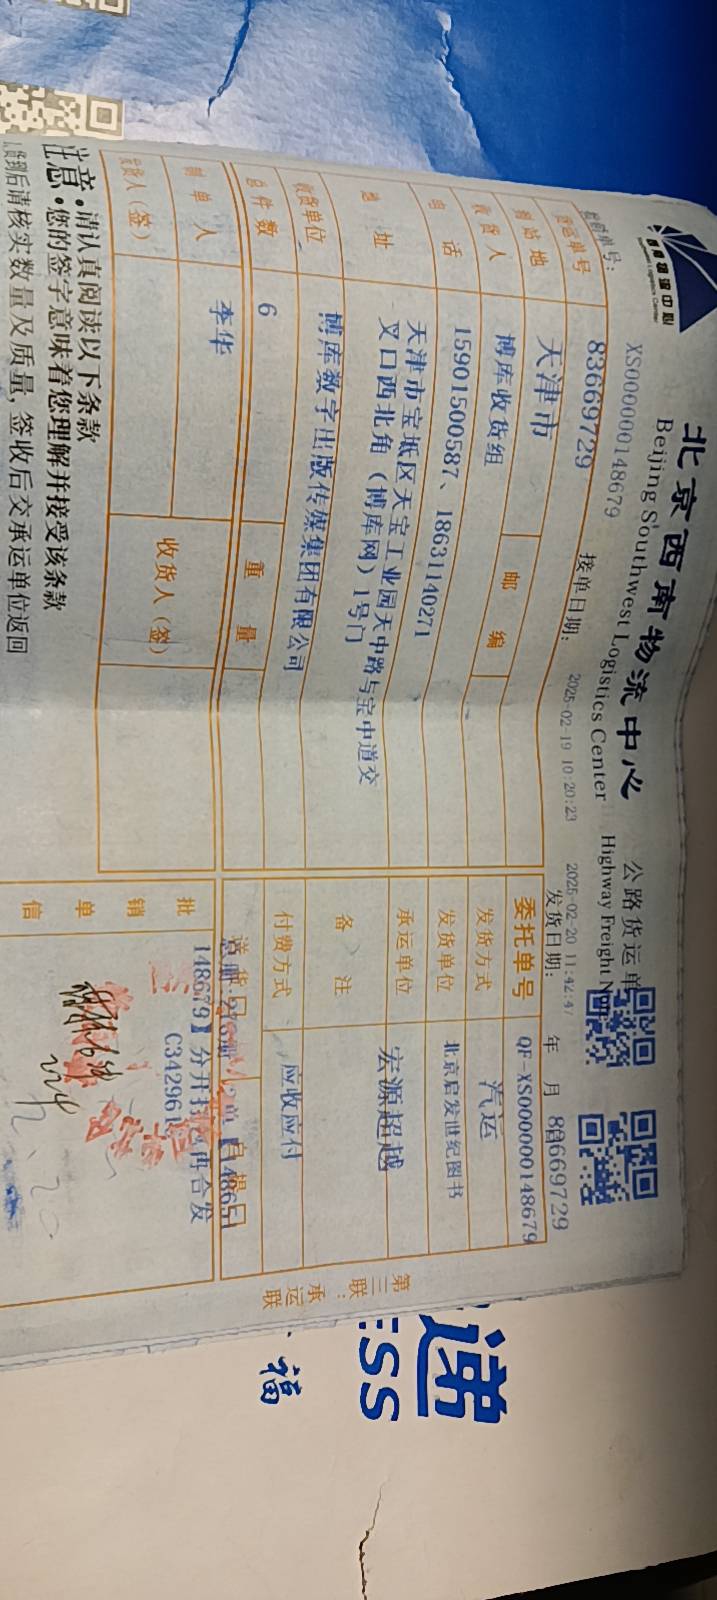 西南物流中心
Southwest Logistics Center
北京西南物流中心 公路货运单
Beijing Southwest Logistics Center Highway Freight
单号:
XS000000148679
接单日期: 2025-02-19 10:20:23
2025-02-20 11:42:47
发货日期: 年 月 日
83669729
货运单号 83669729
委托单号 QF-XS000000148679
到站地 天津市 邮编
发货方式 汽运
收货人 博库收货组
发货单位 北京启发世纪图书
电话 15901500587、18631140271
承运单位 宏源超越
地址 天津市宝坻区天宝工业园天中路与宝中道交
叉口西北角(博库网)1号门
备注
收货单位 博库数字出版传媒集团有限公司
付费方式 应收应付
总件数 6 重量
送货 自提
制单人 李华
发货人(签)
收货人(签)
批销单信
148679】分开打 再合发
C342961
第三联:承运联
注意:请认真阅读以下条款
您的签字意味着您理解并接受该条款
到后请核实数量及质量,签收后交承运单位返回
递
ESS
福